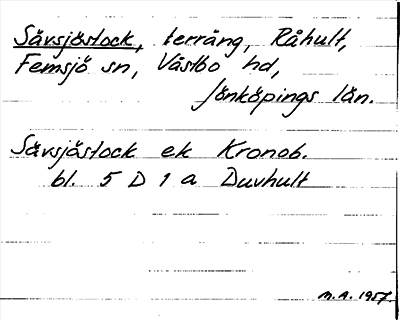 Sävsjöstock, terräng, Råhult,
Femsjö sn, Västbo hd,
Jönköpings län.
Sävsjöstock ek Kronob.
bl. 5 D 1 a Duvhult
M.A. 1957